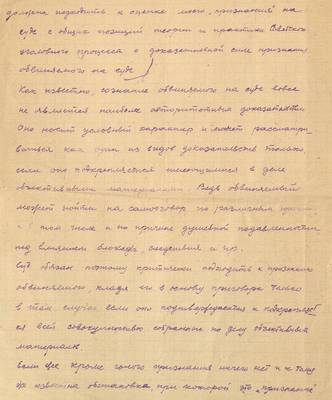 должна подходить к оценке моего „признания" на
суде с общих позиций теории и практики Советского
уголовного процесса о доказательной силе признания
обвиняемого на суде
Как известно, сознание обвиняемого на суде вовсе
не является наиболее авторитетным доказательством.
Оно носит условный характер и может рассматри-
ваться как один из видов доказательства только
если оно подкрепляется имеющимися в деле
объективными материалами. Ведь обвиняемый
может пойти на самооговор по различным
в том числе и по причине душевной подавленности
под влиянием следствия и пр.
Суд обязан поэтому критически подходить к признанию
обвиняемого, кладя его в основу приговора только
в том случае если оно подтверждается и подкрепляет
ся всей совокупностью собранных по делу объективных
материалов
Если же кроме голого признания ничего нет и к тому
же известна обстановка при которой это „признание"